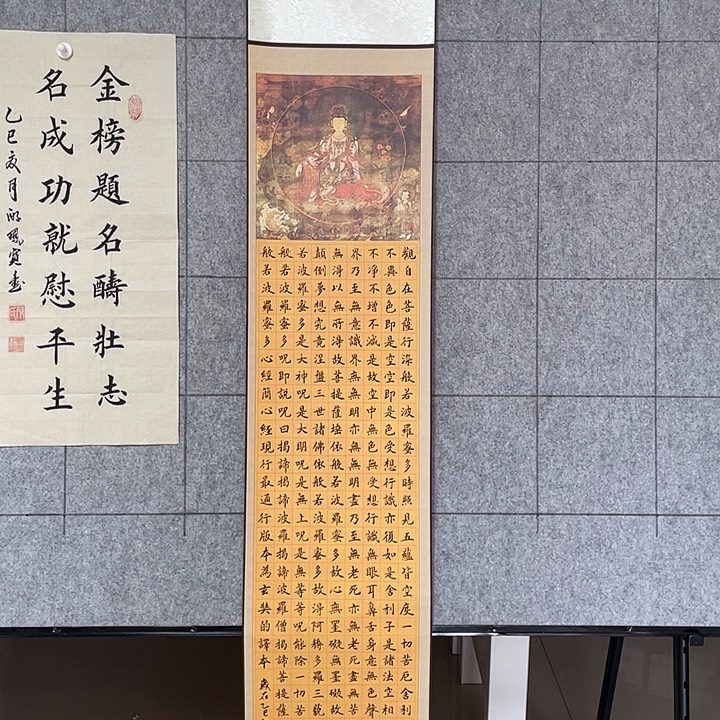 金榜題名醻壯志
名成功就慰平生
乙巳夏月
觀自在菩薩行深般若波羅蜜多時照見五蘊皆空度一切苦厄舍利
不異色色即是空空即是色受想行識亦復如是舍利子是諸法空相
不淨不增不減是故空中無色無受想行識無眼耳鼻舌身意無色聲
界乃至無意識界無無明亦無無明盡乃至無老死亦無老死盡無苦
無得以無所得故菩提薩埵依般若波羅蜜多故心無罣礙無罣礙故
顛倒夢想究竟涅盤三世諸佛依般若波羅蜜多故得阿耨多羅三藐
若波羅蜜多是大神呪是大明呪是無上呪是無等等呪能除一切苦
般若波羅蜜多呪即說呪曰揭諦揭諦波羅揭諦波羅僧揭諦菩提薩
般若波羅蜜多心經簡心經現行最通行版本為玄奘的譯本 歲在乙巳